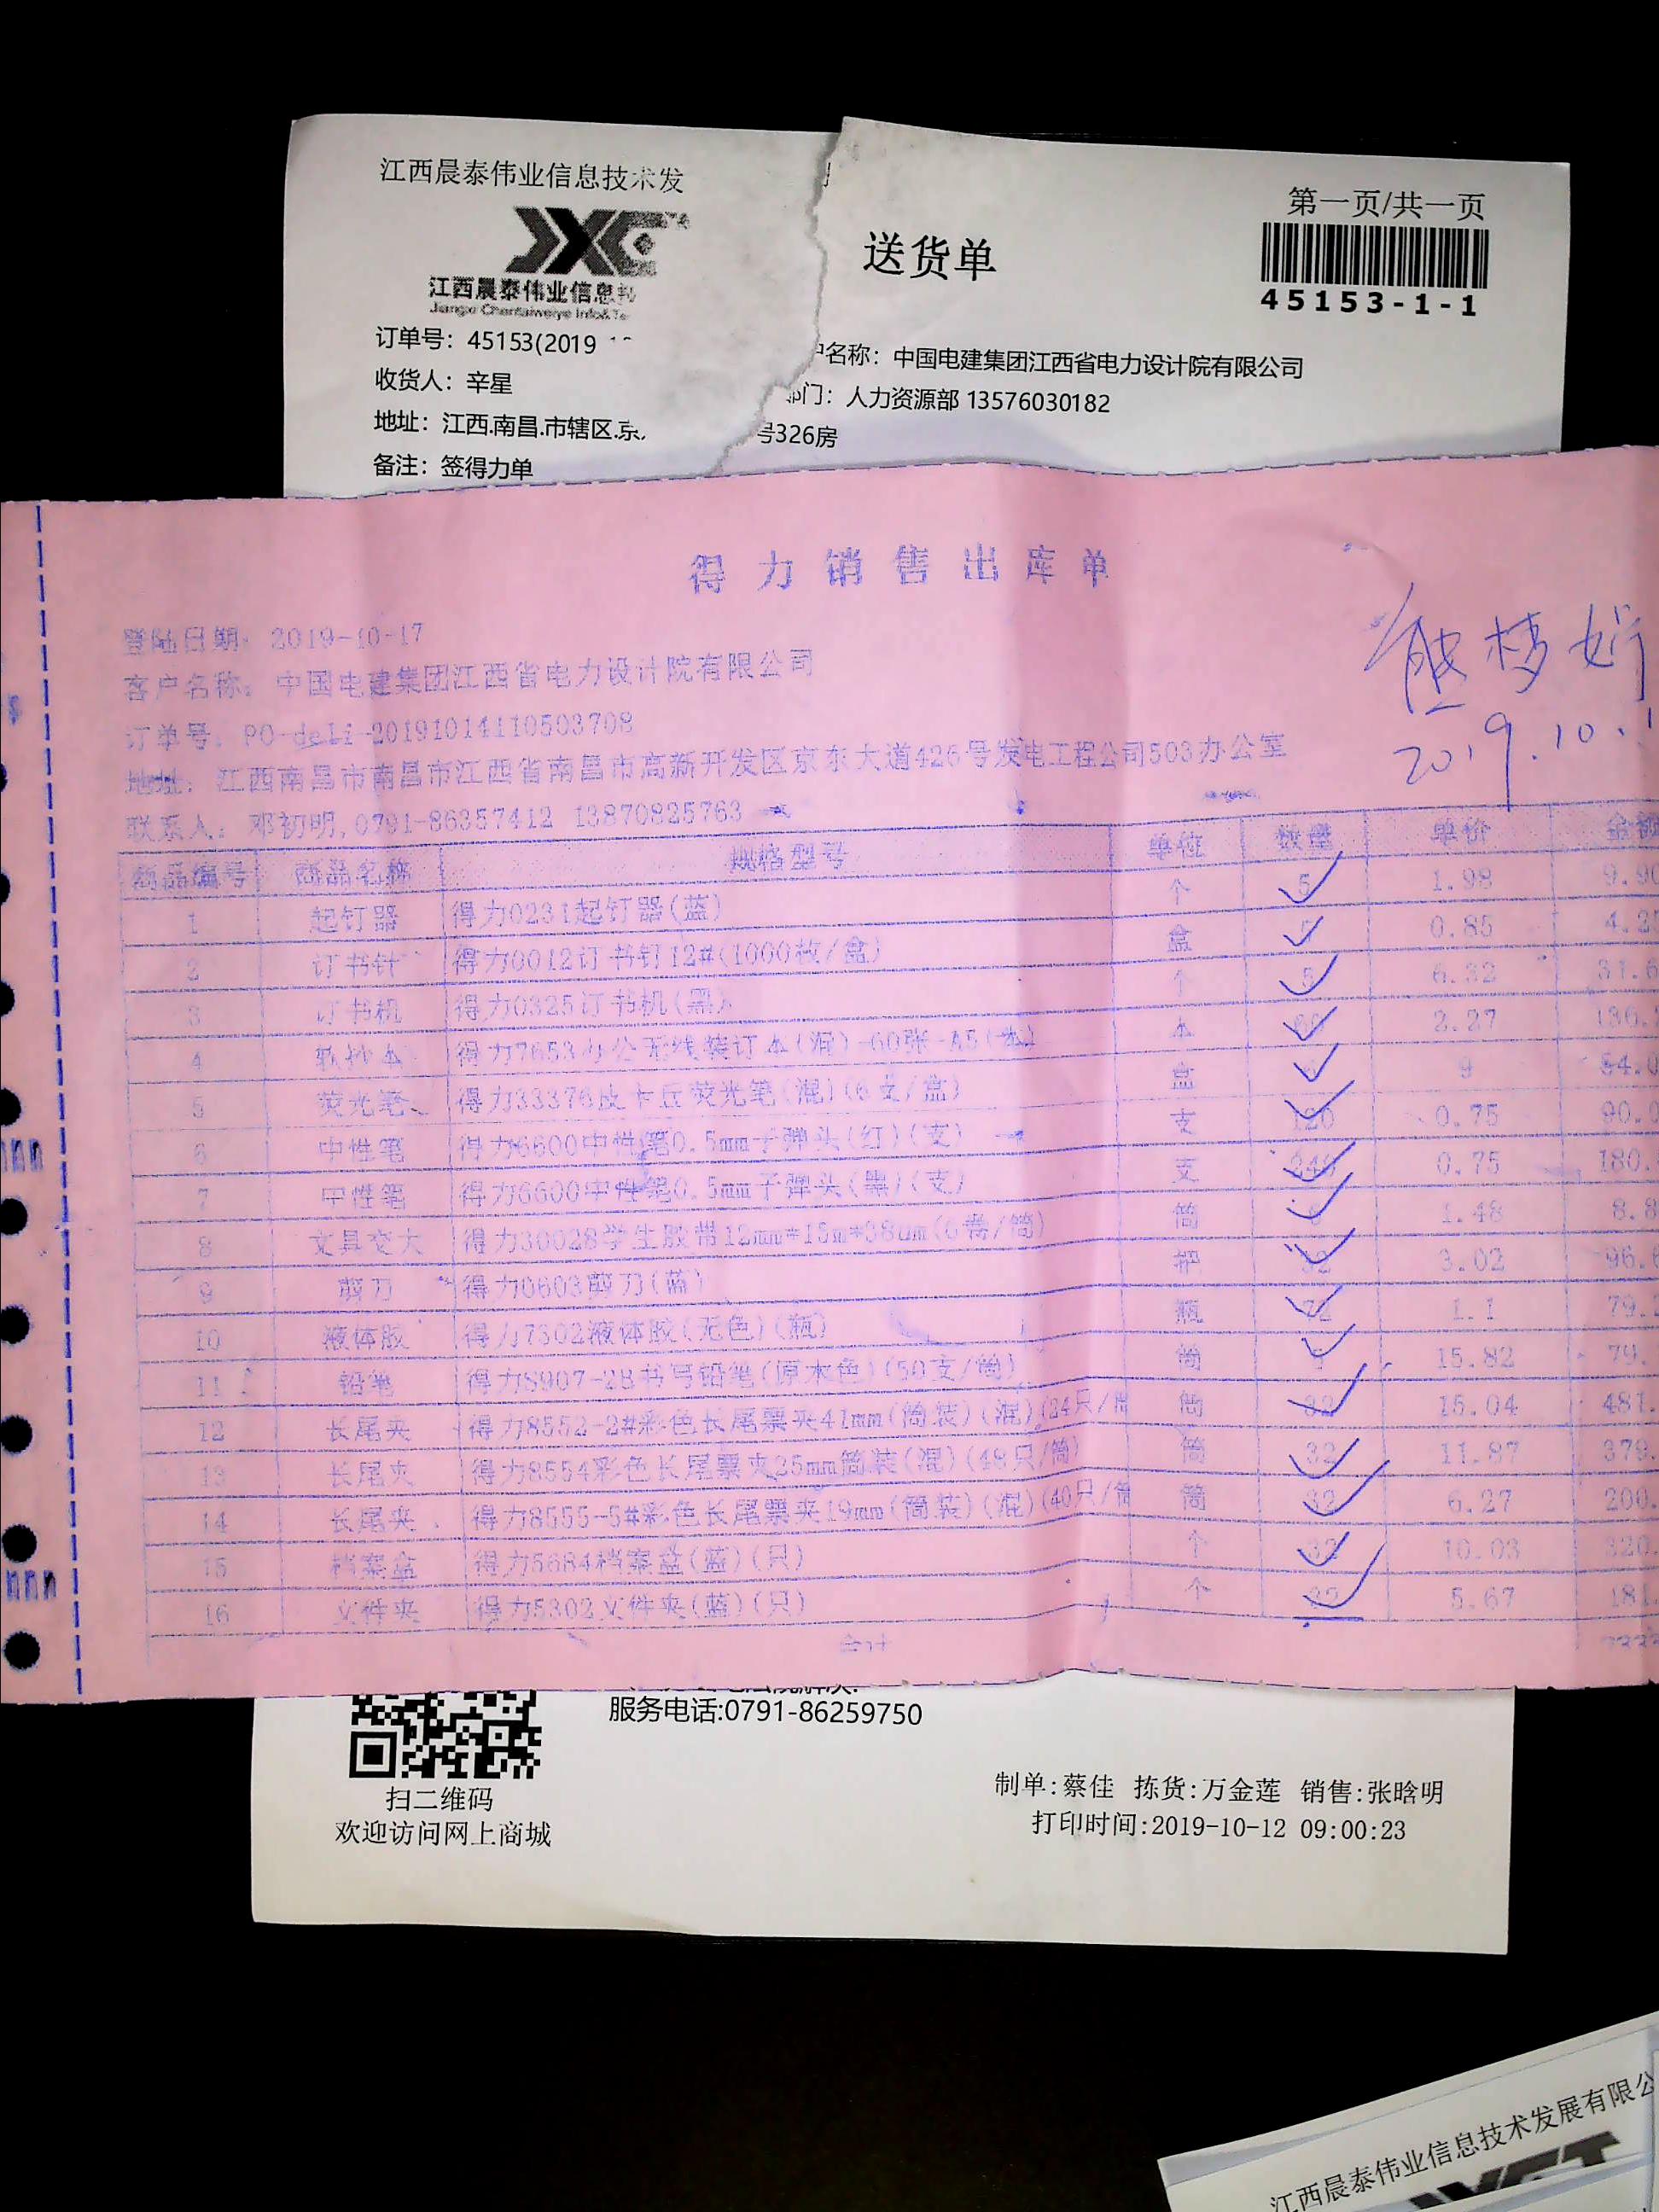 江西晨泰伟业信息技术发
第一页/共一页
送货单
江西晨泰伟业信息
45153-1-1
订单号：45153(2019
户名称：中国电建集团江西省电力设计院有限公司
收货人：辛星
部门：人力资源部 13576030182
地址：江西.南昌.市辖区.京
号326房
备注：签得力单
得力销售出库单
登陆日期：2019-10-17
熊梦娇
2019.10.1
客户名称：中国电建集团江西省电力设计院有限公司
订单号：PO-deli-20191014110503708
地址：江西南昌市南昌市江西省南昌市高新开发区京东大道426号发电工程公司503办公室
联系人：邓初明,0791-86357412 13870825763
商品编号 商品名称 规格型号 单位 数量 单价 金额
1 起钉器 得力0231起钉器(蓝) 个 5 1.98 9.90
2 订书针 得力0012订书钉12#(1000枚/盒) 盒 0.85 4.25
3 订书机 得力0325订书机(黑) 个 5 6.32 31.6
4 软抄本 得力7653办公无线装订本(混)-60张-A5(本) 本 60 2.27 136.
5 荧光笔 得力33376皮卡丘荧光笔(混)(6支/盒) 盒 9 54.0
6 中性笔 得力6600中性笔0.5mm子弹头(红)(支) 支 120 0.75 90.0
7 中性笔 得力6600中性笔0.5mm子弹头(黑)(支) 支 240 0.75 180.
8 文具胶大 得力30028学生胶带12mm*15m*38um(6卷/筒) 筒 1.48 8.8
9 剪刀 得力0603剪刀(蓝) 把 32 3.02 96.6
10 液体胶 得力7302液体胶(无色)(瓶) 瓶 72 1.1 79.2
11 铅笔 得力S907-2B书写铅笔(原木色)(50支/筒) 筒 15.82 79.
12 长尾夹 得力8552-2#彩色长尾票夹41mm(筒装)(混)(24只/筒 筒 32 15.04 481.
13 长尾夹 得力8554彩色长尾票夹25mm筒装(混)(48只/筒) 筒 32 11.87 379.
14 长尾夹 得力8555-5#彩色长尾票夹19mm(筒装)(混)(40只/筒 筒 32 6.27 200.
15 档案盒 得力5684档案盒(蓝)(只) 个 32 10.03 320.
16 文件夹 得力5302文件夹(蓝)(只) 个 32 5.67 181.
合计
服务电话:0791-86259750
扫二维码
欢迎访问网上商城
制单:蔡佳 拣货:万金莲 销售:张晗明
打印时间:2019-10-12 09:00:23
江西晨泰伟业信息技术发展有限公